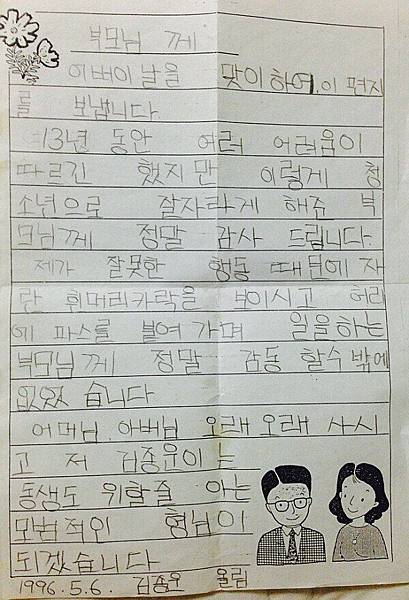 부모님 께
어버이 날을 맞이하여 이 편지
를 보냅니다
13년 동안 여러 어려움이
따르긴 했지만 이렇게 청
소년으로 잘자라게 해준 부
모님께 정말 감사 드립니다.
제가 잘못한 행동 때문에 자
란 흰머리카락을 보이시고 허리
에 파스를 붙여 가며 일을하는
부모님께 정말 감동 할수 밖에
없었 습니다
어머님. 아버님 오래 오래 사시
고 저 김종윤이는
동생도 위할줄 아는
모범적인 형님이
되겠습니다
1996.5.6. 김종윤 올림